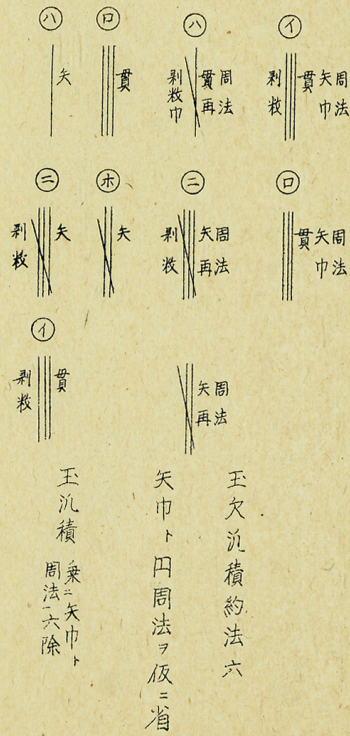 イ
周法
矢巾
貫
剥数
ハ
周法
貫再
剥数巾
ロ
貫
ハ
矢
ロ
周法
矢巾
貫
ニ
周法
矢再
剥数
ホ
矢
ニ
矢
剥数
周法
矢再
イ
貫
剥数
玉欠汎積約法六
矢巾ト円周法ヲ仮ニ省
玉汎積
乗ニ矢巾ト
周法一六除